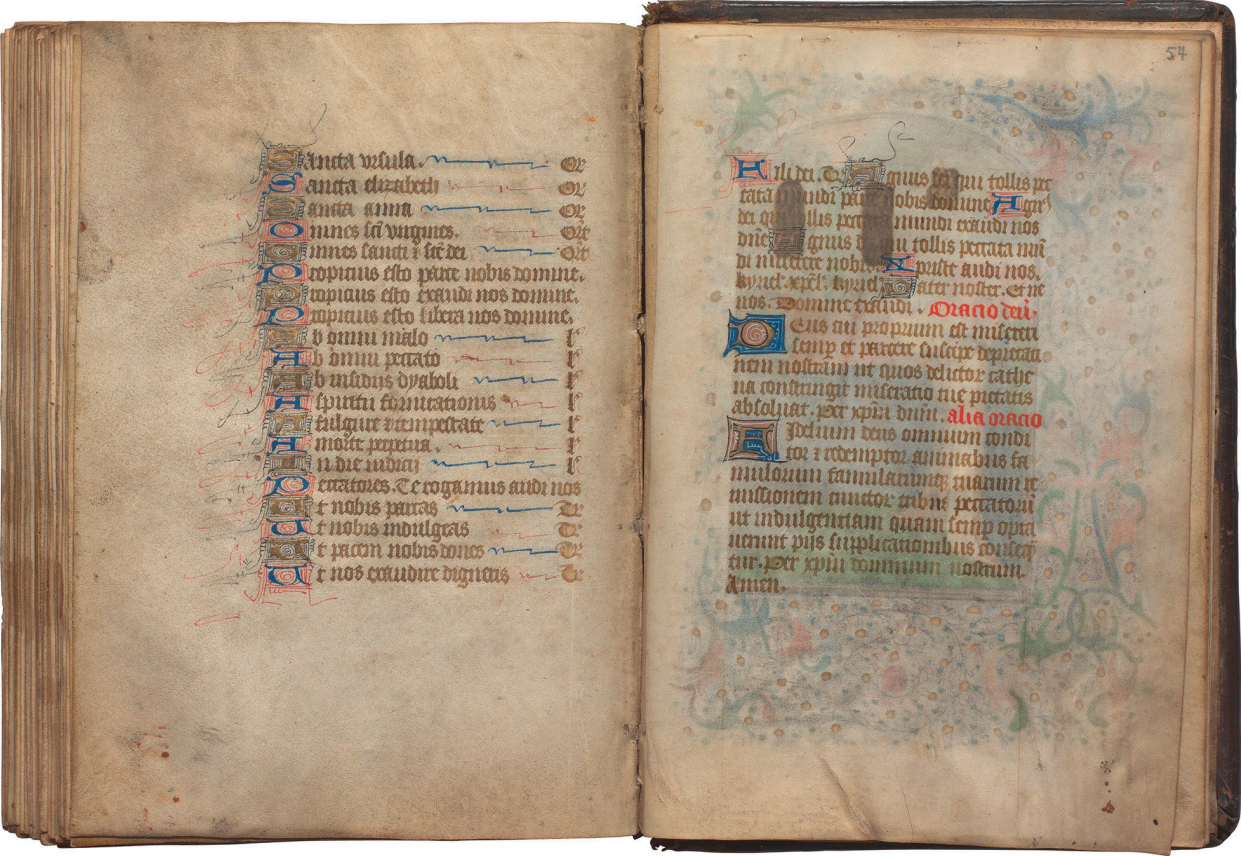 Sancta vrsula. Or
Sancta elizabeth Or
Sancta anna Or
Omnes scē virgines. Orē
Omnes sancti ⁊ scē dei Orē
Propicius esto parce nobis domine.
Propicius esto exaudi nos domine.
Propicius esto libera nos domine.
Ab omni malo l'
Ab omni peccato l'
Ab insidijs dyaboli l'
A spiritu fornicationis l'
A fulgure ⁊ tempestate l'
A morte perpetua. l'
In die iudicij l'
Peccatores. Te rogamus audi nos
Ut nobis parcas Te
Ut nobis indulgeas Te
Ut pacem nobis dones Te
Ut nos exaudire digneris Te
54
Fili dei. Te Agnus dei qui tollis pec
cata mundi parce nobis domine Agn'
dei qui tollis peccata mundi exaudi nos
dn̄e Agnus dei qui tollis peccata mū
di miserere nobis Xpriste audi nos.
kyriel'. xpel'. kyriel' Pater noster. Et ne
nos. Domine exaudi. Oracio deū.
Deus cui proprium est misereri
semp et parcere suscipe deprecati
nem nostram ut quos delictor cathe
na constringit miseratio tue pietatis
absoluat. Per xpm dnm. alia oracio
Fidelium deus omnium condi
tor ⁊ redemptor animabus fa
mulorum famularumqꝫ tuarum re
missionem cunctor tribue peccatorū
ut indulgentiam quam semp opta
uerunt pijs supplicationibus conseq
tur. Per xpm dominum nostrum.
Amen.